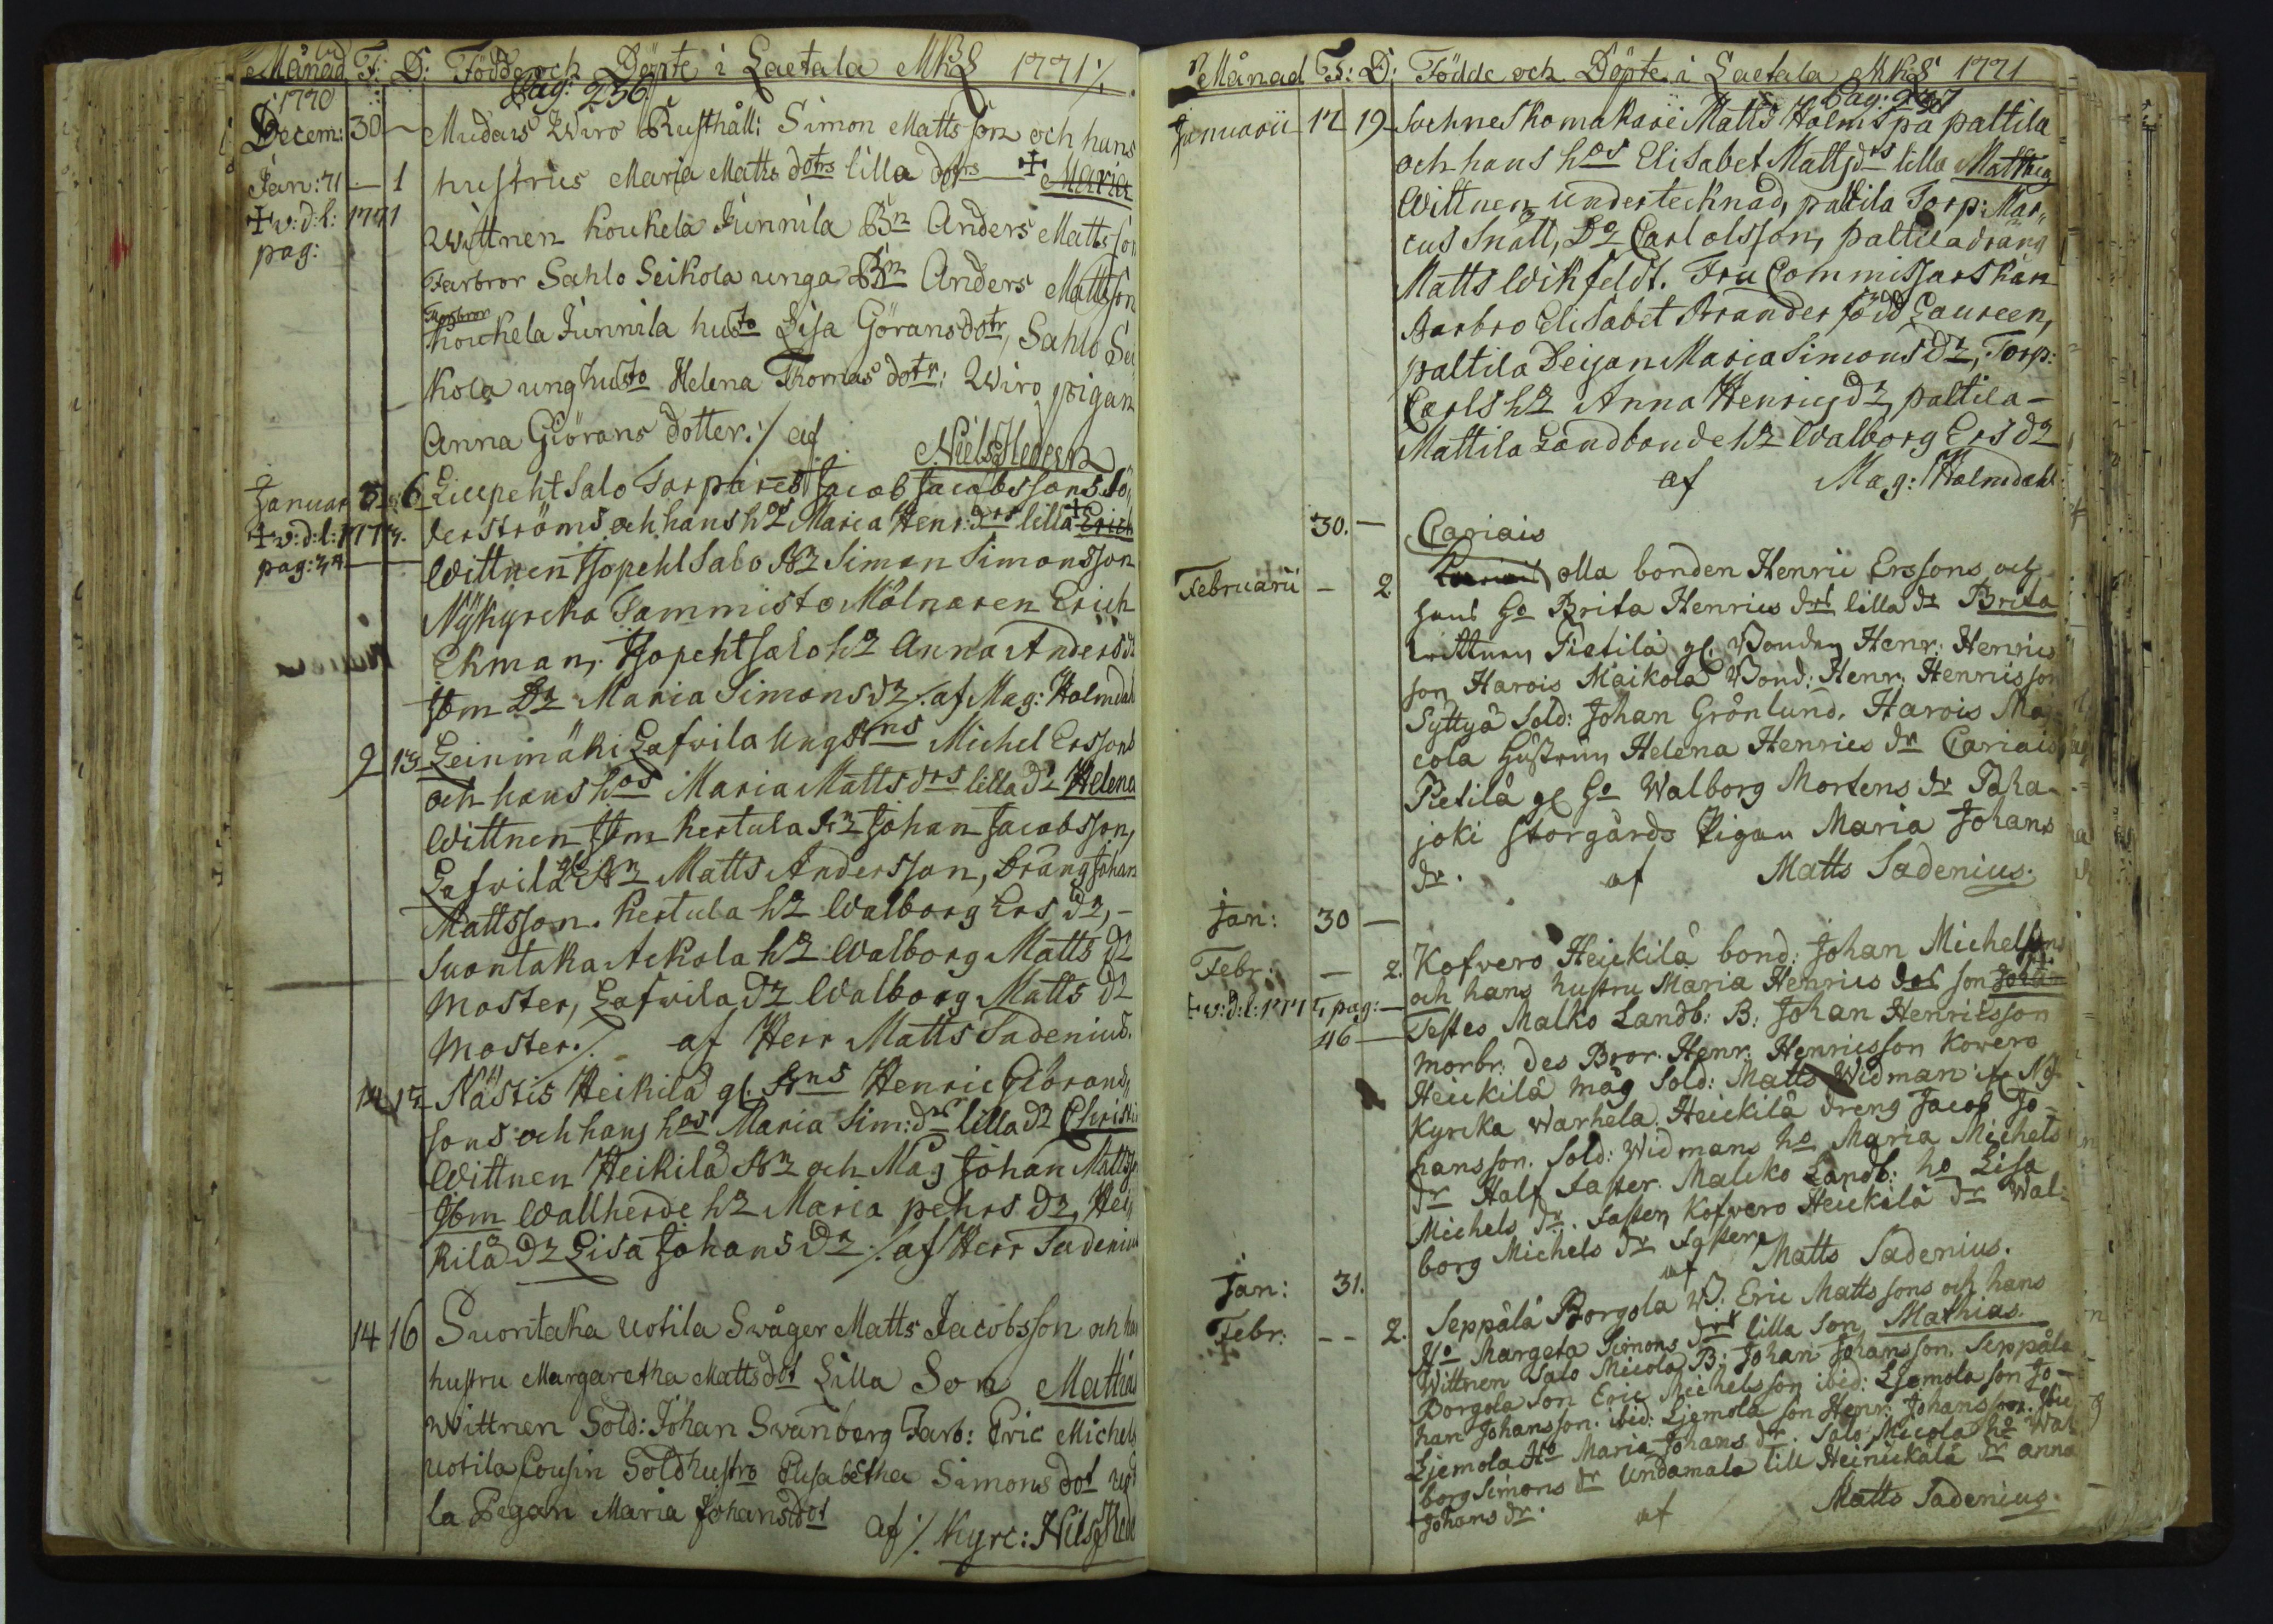 Månad F: D: Födde och Döpte i Laetala MkS 1771 ⁒
Pag: 236
1770
Decem: 30 — Mudais Wiro Rusthåll: Simon Matts son och hans
Jan: 71 — 1 hustrus Maria Matts dotrs lilla dotrs — ✝ Maria
✝ v: d: l: 1771
pag:
Wittnen Koukela Junnila Bn Anders Matts son
Farbror Sahlo Seikola unga Bn Anders Mattsson
Morbror
Koukela Junnila husto Lisa Göransdotr, Sahlo Sei
kola ung husto Helena Thomas dotr: Wiro pigan
Anna Giörans dotter. ⁒ af Niels Hedeen
Januar 5 6 Salo Torpares Jacob Jacobssons Sö„
✝ v: d: l: 1773. derströms och hans hos Maria Henr: drs lilla ✝ Erich
pag: 34 — Wittnen Hopeht Salo Bn Simon Simonsson
Nykyrcko Tammisto Mölnaren Erich
Ekman, Hopeht salo ho Anna Anders dr
Ibm Dr Maria Simons dr ⁒ af Mag: Holmdahl
9 13 Leinmäki Lafvila Ung Bns Michel Erssons
och hans hos Maria Matts drs lilla dr Helena
Wittnen Ibm Kertula Bn Johan Jacobsson,
Lafvila gl Bn Matts Andersson, Dräng Johan
Mattsson. Kertula ho Walborg Ers dr, —
Suontaka Ackola ho Walborg Matts dr
Moster, Lafvila dr Walborg Matts dr
Moster. ⁒ af Herr Matts Sadenius.
14 17 Nästis Heikilä gl. Bns Henric Görans„
sons och hans hos Maria Sim: drs lilla dr Christi
Wittnen Heikilä Bn och Måg Johan Mattss
Ibm Wallherde ho Maria Pehrs dr, Hei„
kilä dr Lisa Johans dr ⁒ af Herr Sadenius
14 16 Suontaka Uotila Swåger Matts Jacobsson och ha
hustru Margaretha Mattsdot Lilla Son Mathias
Wittnen Sold: Johan Svanberg Farb: Eric Michels
Uotila Cousin Sold hustro Elisabetha Simons dot
la Pegan Maria Johansdot
af ⁒ Kyrc: Nils Hede
Månad F: D: Födde och Döpte i Laetala MkS 1771
Pag: 237
Januarii 17 19 Sochne Skomakare Matts Holms på Paltila
och hans hos Elisabet Mattsdrs lilla Mathias
Wittnen undertecknad, Paltila Torp: Mar„
cus Snäll, Do Carl olsson, Paltila dräng
Matts Wikfeldt. Fru Commissarskan
Barbro Elisabet Brander född Laureen,
Paltila Deijan Maria Simons dr, Torp:
Carls ho Anna Henrics dr, Paltila —
Mattila Landbonde ho Walborg Ers dr
af Mag: Holmdahl
30. — Cariais
Februarii — 2 olla bonden Henric Erssons och
hans ho Brita Henrics drs lilla dr Brita
Wittnen Pietilä gl. Bonden Henr. Henrics
son Harois Maikola Bond: Henr. Henrisson
Syttyä Sold: Johan Grönlund. Harois Ma
cola Hustrun Helena Henrics dr Cariais
Pietilä gl ho Walborg Mortens dr Paha
joki Storgårds Pigan Maria Johans
dr. af Matts Sadenius.
Jan: 30 —
Febr: — 2. Kofvero Heickilä bond: Johan Michelssons
✝ v: d: l: 1775 pag: — och hans hustru Maria Henrics dos son Joha
46 — Testes Malko Landb: B: Johan Henrilsson
morbr: des Bror. Henr: Henricsson Kovero
Heickilä måg Sold: Matts Widman Ny
kyrcka Warhela. Heickilä dreng Jacob Jo
hansson. Sold: Widmans ho Maria Michels
dr Half Faster. Malcko Landb: ho Lisa
Michels dr. Faster, Kofvero Heickilä dr Wal:
borg Michels dr Faster.
af Matts Sadenius.
Jan: 31.
Febr: — — 2. Seppälä Borgola B: Eric Mattssons och hans
✝ Ho Margeta Simons drs lilla Son Mathias.
Wittnen Salo Micola B: Johan Johansson. Seppälä
Borgola Son Eric Michelsson ibid: Ljemola son Jo—
han Johansson. ibid: Ljemola son Henr. Johansson. Ibid
Ljemola Ho Maria Johans dr. Salo Micola ho Wal
borg Simons dr Undamala lill Heinickälä dr Anna
Johans dr. af Matts Sadenius.